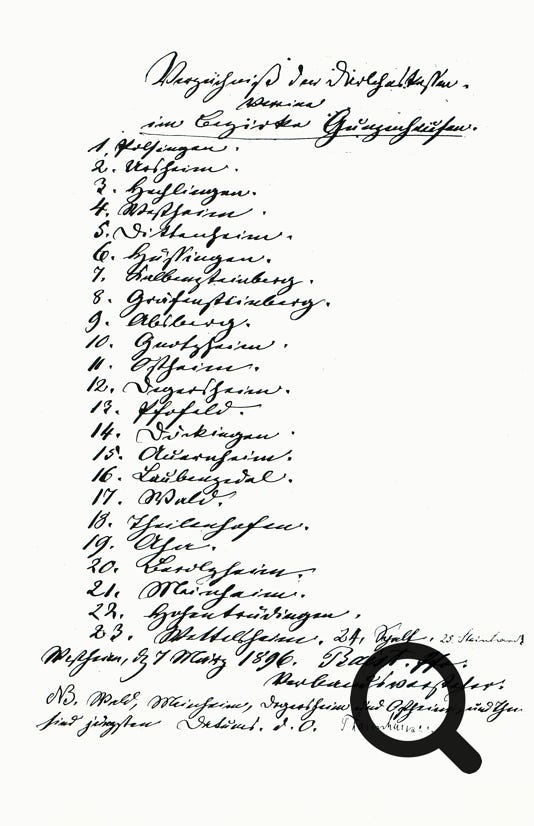 Verzeichniß der Darlehenskassen-
Vereine
im Bezirke Gunzenhausen.
1. Polsingen.
2. Ursheim.
3. Hechlingen.
4. Westheim.
5. Dittenheim.
6. Hüssingen.
7. Kalbensteinberg.
8. Gräfensteinberg.
9. Absberg.
10. Gnotzheim.
11. Ostheim.
12. Degersheim.
13. Pfofeld.
14. Döckingen.
15. Auernheim.
16. Laubenzedel.
17. Wald.
18. Theilenhofen.
19. Aha.
20. Berolzheim.
21. Meinheim.
22. Hohentrüdingen.
23. Wettelsheim. 24. 25
Westheim, d. 7 März 1896.
Verbandsvorsteher.
NB. Wald, Meinheim, Degersheim und Ostheim, und
sind jüngsten Datums. d. O.